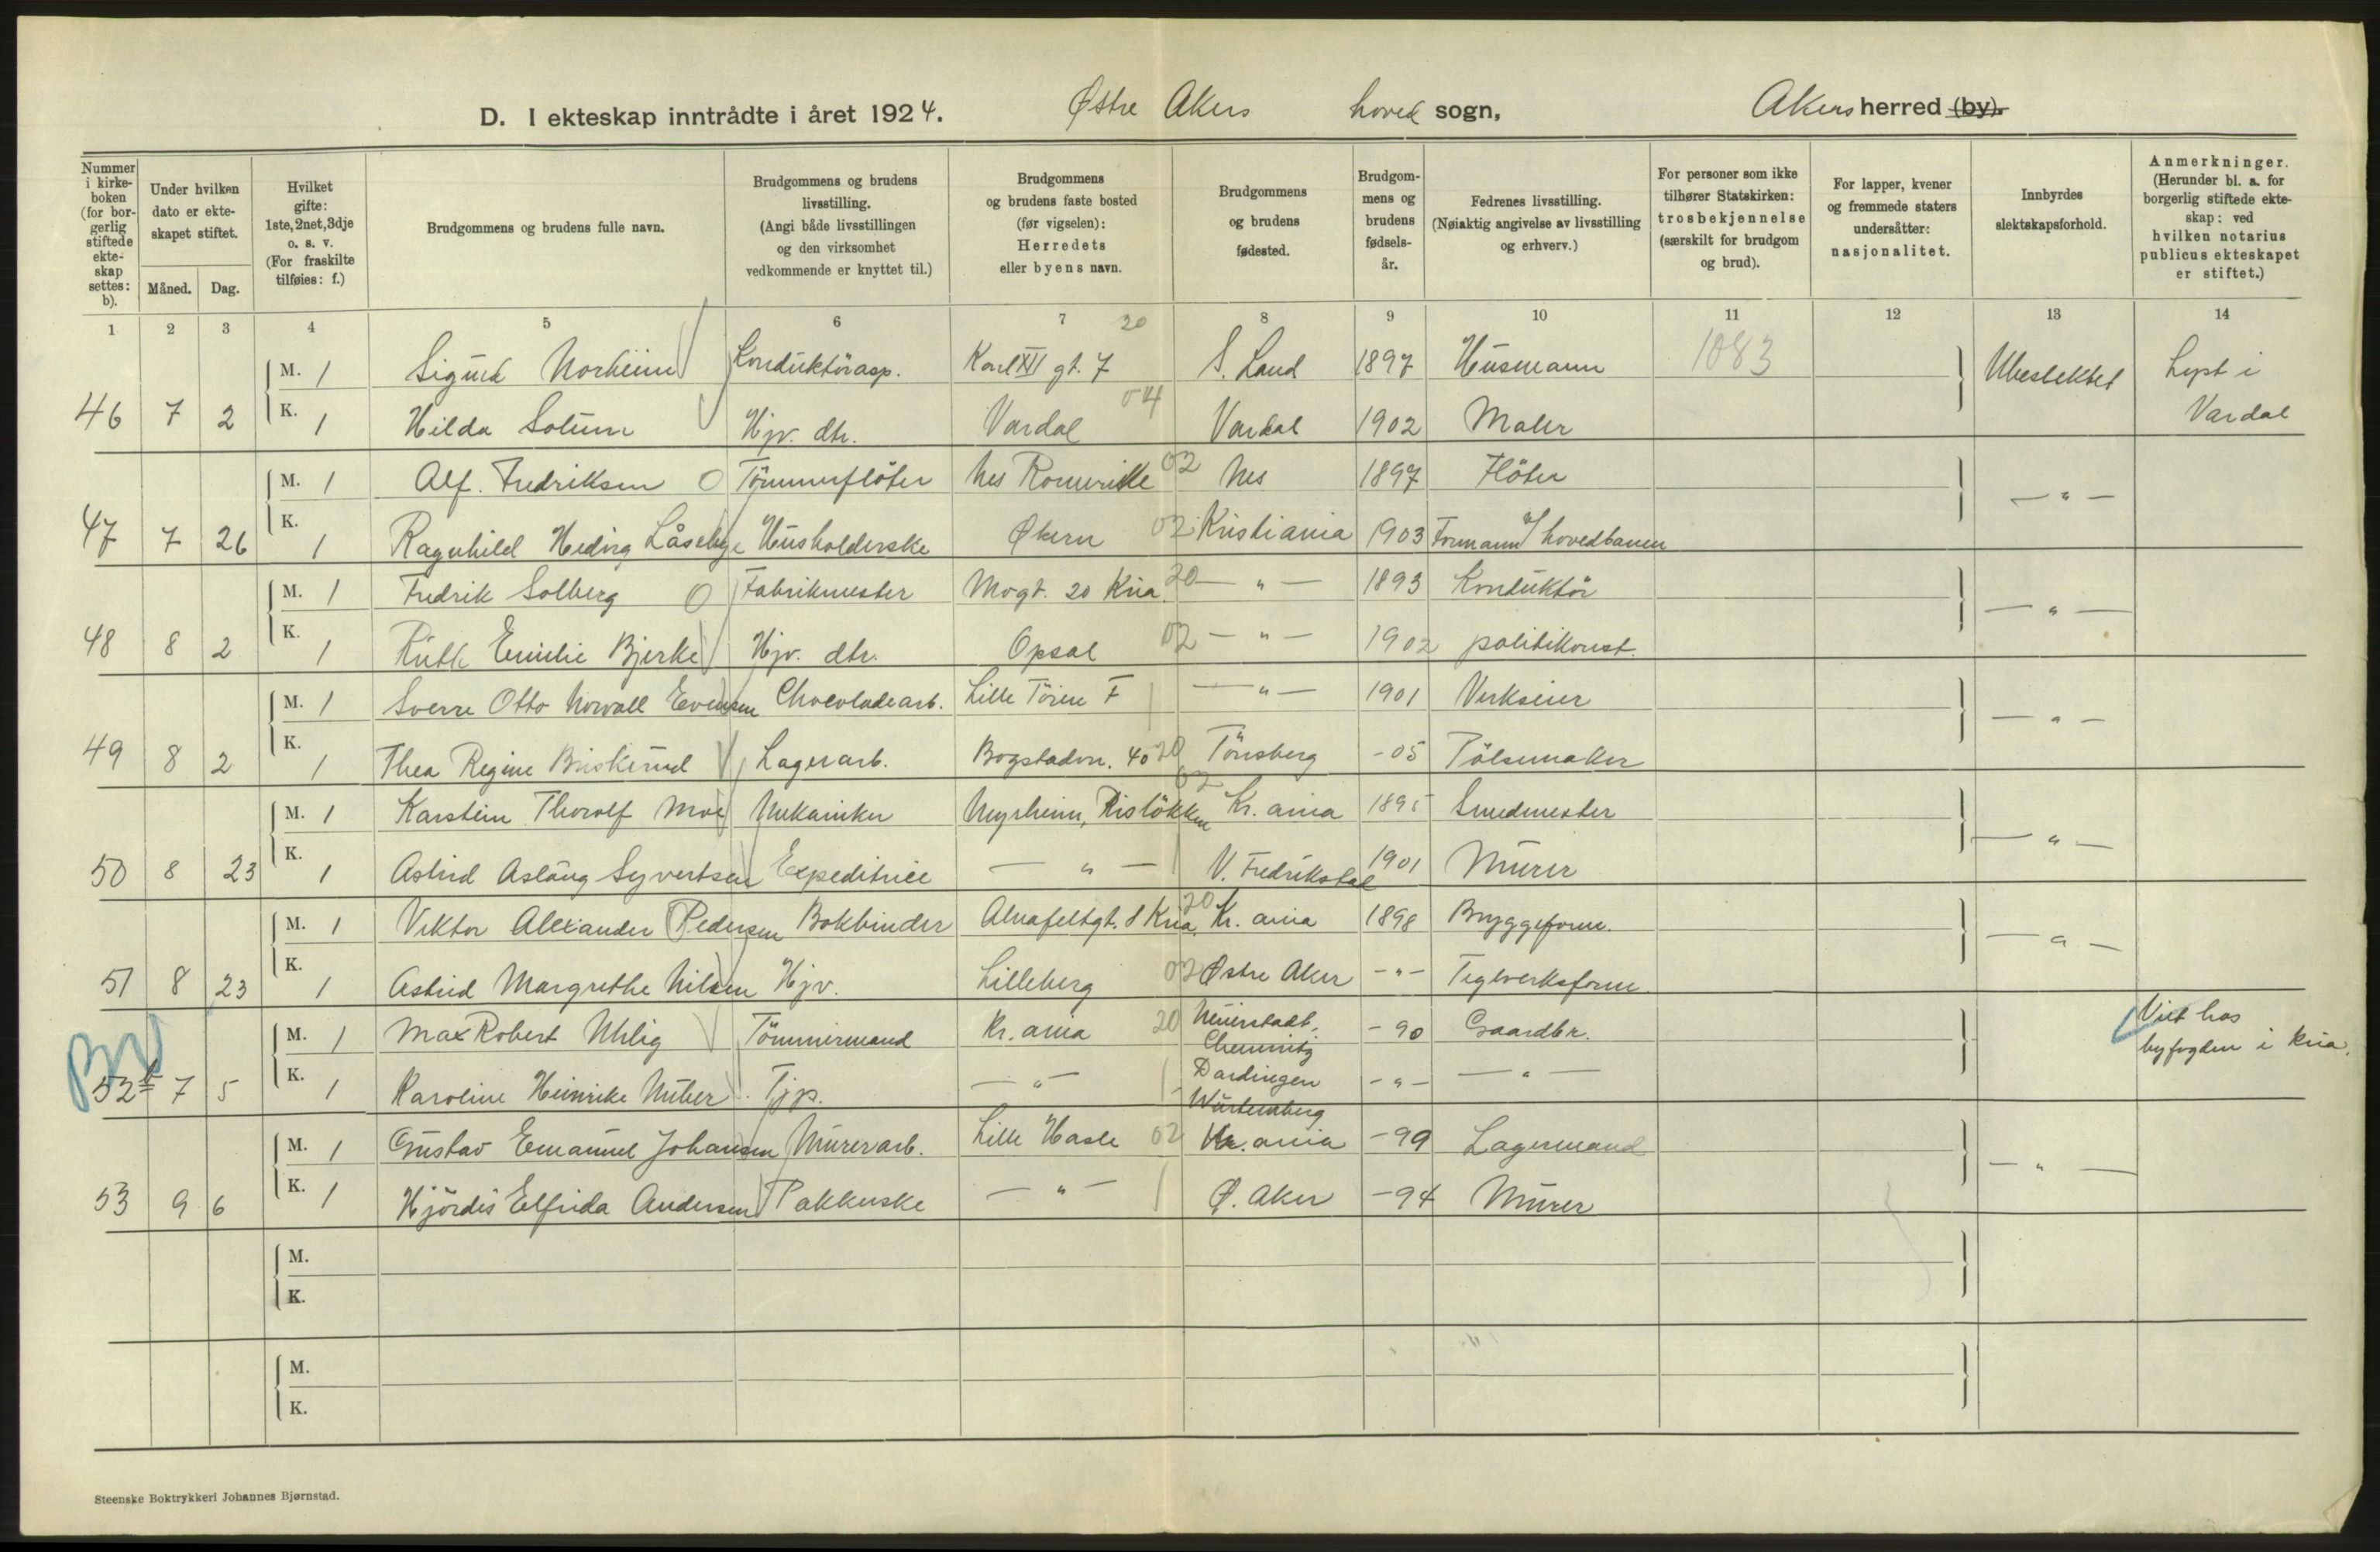 D. I ekteskap inntrådte i året 1924. Østre Akers hoved sogn, Akers herred (by).
Nummer i kirke- boken (for bor- gerlig stiftede ekte- skap settes: b).
Under hvilken dato er ekte- skapet stiftet.
Måned. Dag.
Hvilket gifte: 1ste, 2net, 3dje o. s. v. (For fraskilte tilføies: f.)
Brudgommens og brudens fulle navn.
Brudgommens og brudens livsstilling. (Angi både livsstillingen og den virksomhet vedkommende er knyttet til.)
Brudgommens og brudens faste bosted (før vigselen): Herredets eller byens navn.
Brudgommens og brudens fødested.
Brudgom- mens og brudens fødsels- år.
Fedrenes livsstilling. (Nøiaktig angivelse av livsstilling og erhverv.)
For personer som ikke tilhører Statskirken: trosbekjennelse (særskilt for brudgom og brud).
For lapper, kvener og fremmede staters undersåtter: nasjonalitet.
Innbyrdes slektskapsforhold.
Anmerkninger. (Herunder bl. a. for borgerlig stiftede ekte- skap: ved hvilken notarius publicus ekteskapet er stiftet.)
1 2 3 4 5 6 7 8 9 10 11 12 13 14
20
M. 1 Sigurd Norheim Konduktörasp. Karl XII gt. 7 S. Land 1897 Husmann 1083 Ubeslektet Lyst i
46 7 2 K. 1 Hilda Solum Hjv. dtr. Vardal 04 Vardal 1902 Maler Vardal
M. 1 Alf. Fredriksen O Tömmerflöter Nes Romerike 02 Nes 1897 Flöter — " —
47 7 26 K. 1 Ragnhild Hedvig Låseby Husholderske Økern 02 Kristiania 1903 Formann v/ hovedbanen
M. 1 Fredrik Solberg O Fabrikmester Mogt. 20 Kria 20 — " — 1893 Konduktör — " —
48 8 2 K. 1 Ruth Emilie Bjerke Hjv. dtr. Opsal 02 — " — 1902 politikonst.
M. 1 Sverre Otto Norvall Evensen Chocoladearb. Lille Töien F — " — 1901 Verkseier — " —
49 8 2 K. 1 Thea Regine Briskerud Lagerarb. Bogstadvn. 40 20 Tönsberg - 05 Pölsemaker
02
M. 1 Karstein Thorolf Moe Mekaniker Myrheim, Rislökken Kr. ania 1895 Smedmester — " —
50 8 23 K. 1 Astrid Aslaug Syvertsen Expeditrice — " — V. Fredrikstad 1901 Murer
M. 1 Viktor Alexander Pedersen Bokbinder Alnafeltgt. 8 Kria 20 Kr. ania 1898 Bryggeform. — " —
51 8 23 K. 1 Astrid Margrethe Nilsen Hjv. Lilleberg 02 Østre Aker - " - Teglverksform.
M. 1 Max Robert Uhlig Tömmermand Kr. ania 20 Chemnitz - 90 Gaardbr. Viet hos
byfogden i Kria.
52 b 7 5 K. 1 Karoline Heinrike Tjp. — " — Dardingen - " - — " —
Würtemberg
M. 1 Gustav Emanuel Johansen Murerarb. Lille Hasle 02 Kr. ania - 99 Lagermand — " —
53 9 6 K. 1 Hjördis Elfrida Andersen Pakkerske — " — Ø. Aker - 94 Murer
M.
K.
M.
K.
Steenske Boktrykkeri Johannes Bjørnstad.